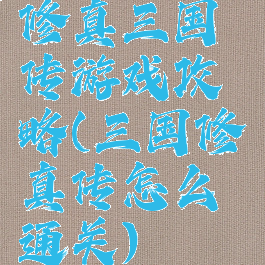 修真三国
传游戏攻
略(三国修
真传怎么
通关)